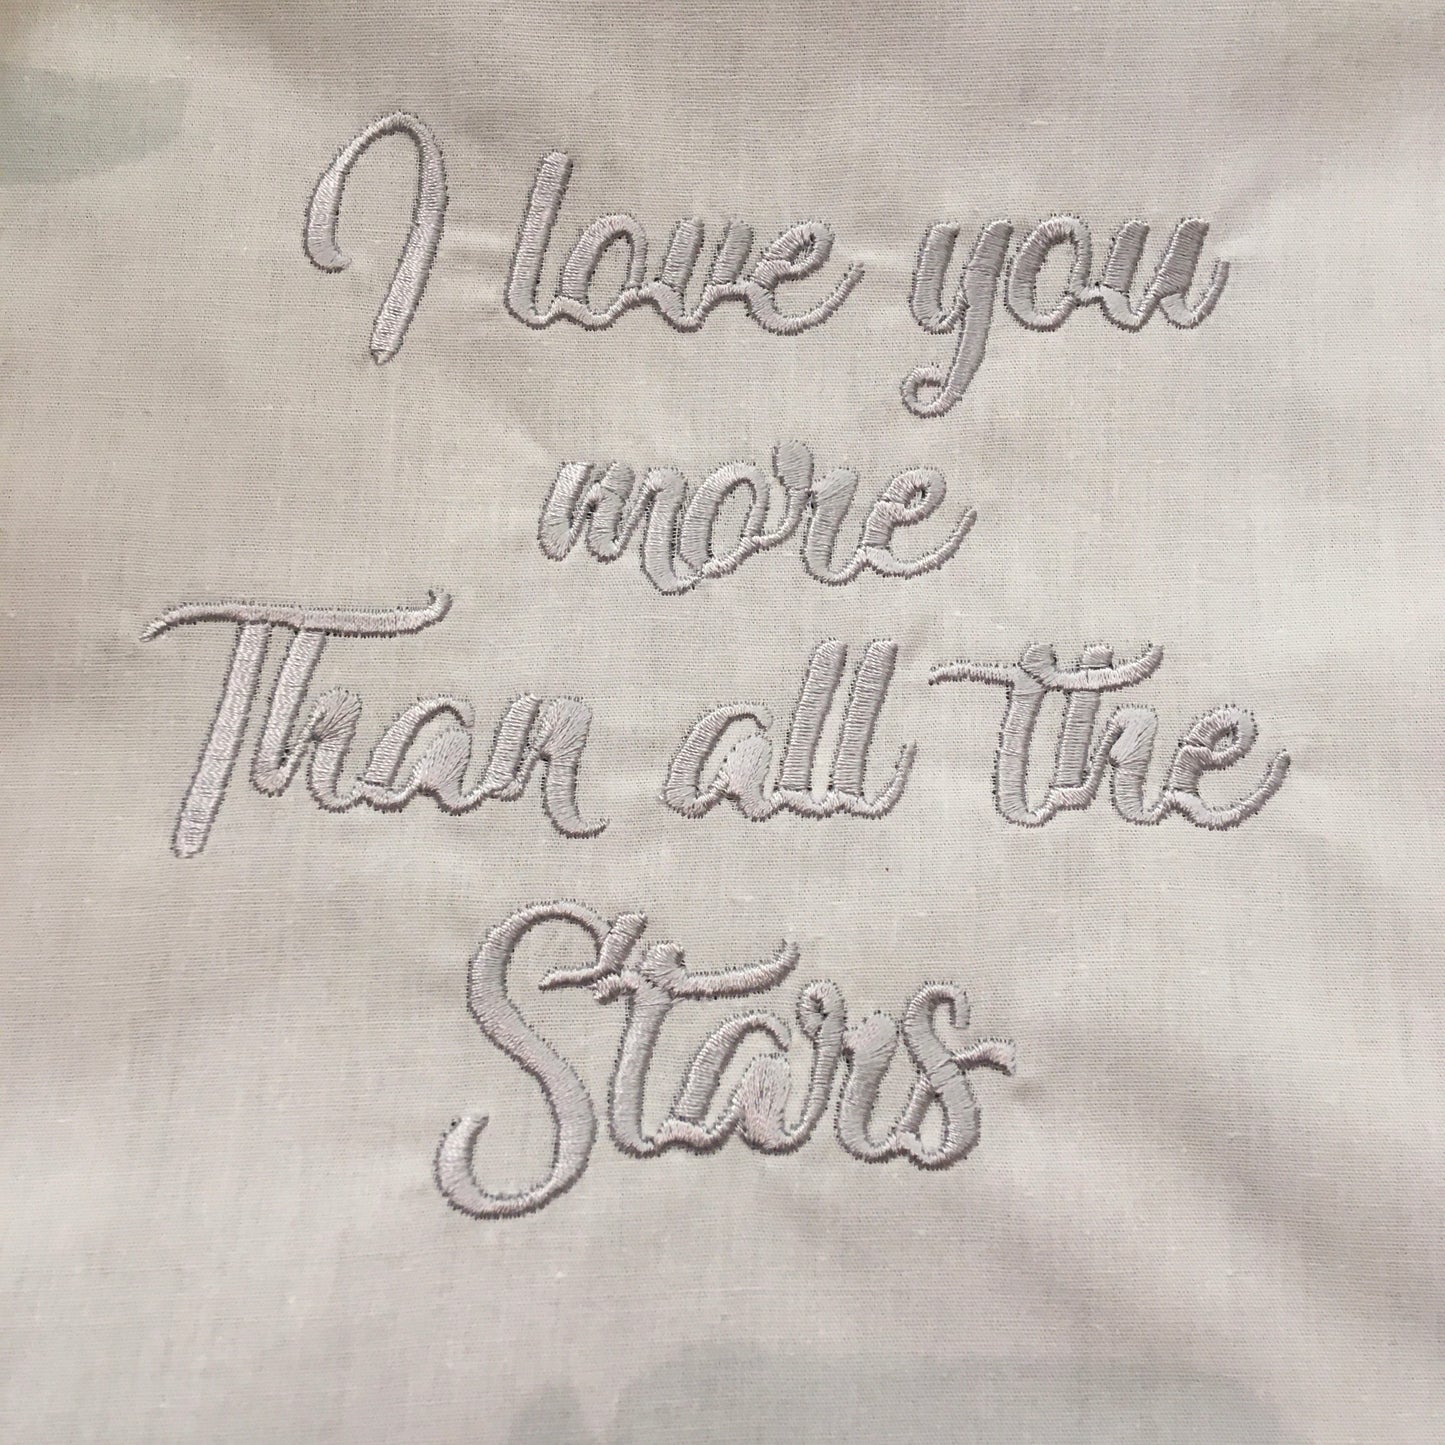 I love you
more
Than all the
Stars